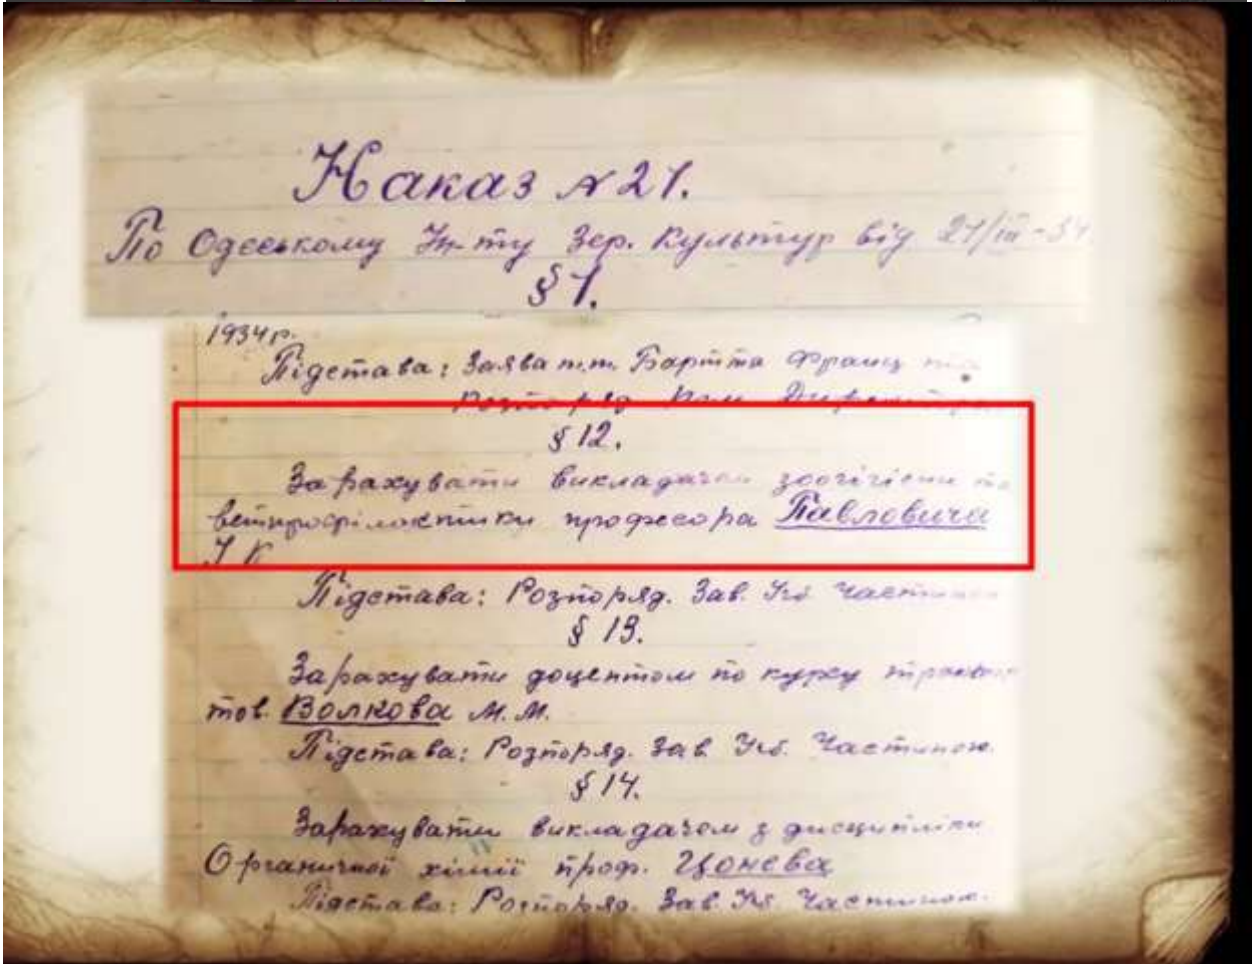 Наказ №21.
По Одеському Ін-ту Зер. Культур від 21/III-34
§ 1.
1934 р.
Підстава: Заява т.т. Бартта Франц та
Розпоряд. Пом. Директора
§ 12.
Зарахувати викладачем зоогігієни та
ветпрофілактики професора Павловича
І К
Підстава: Розпоряд. Зав. Уч. Частиною
§ 13.
Зарахувати доцентом по курсу
тов. Волкова М.М.
Підстава: Розпоряд. Зав. Уч. Частиною.
§ 14.
Зарахувати викладачем з дисципліни
Органичної хімії проф. Цонева
Підстава: Розпоряд. Зав. Уч. Частиною.